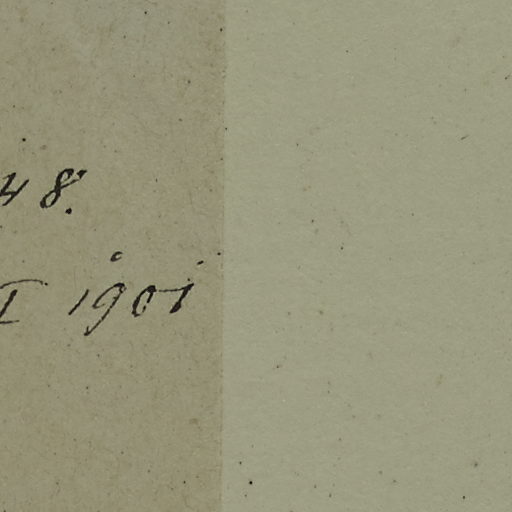 48.
I 1901